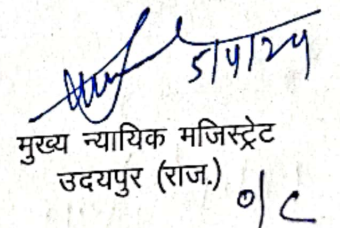 मुख्य न्यायिक मजिस्ट्रेट
उदयपुर (राज.)
o/c